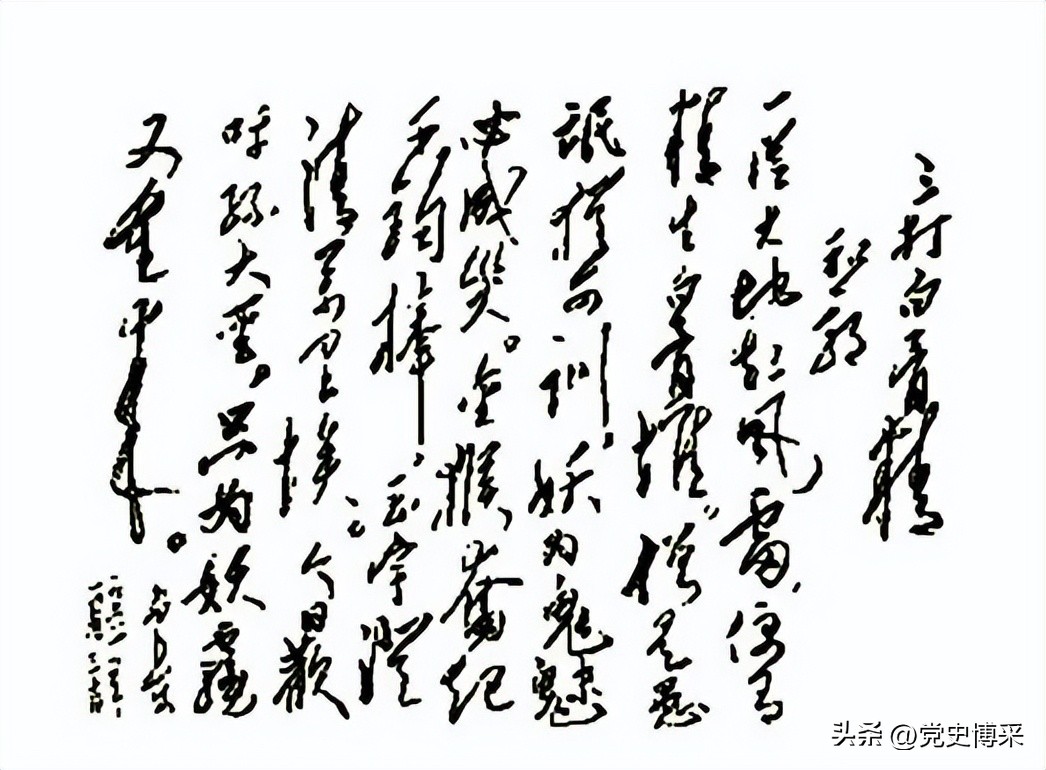 三打白骨精
和郭
一从大地起风雷,便有
精生白骨堆。僧是愚
氓犹可训,妖为鬼魅
必成灾。金猴奋起
千钧棒,玉宇澄
清万里埃。今日欢
呼孙大圣,只为妖雾
又重来。
毛泽东
一九六一
头条 @党史博采